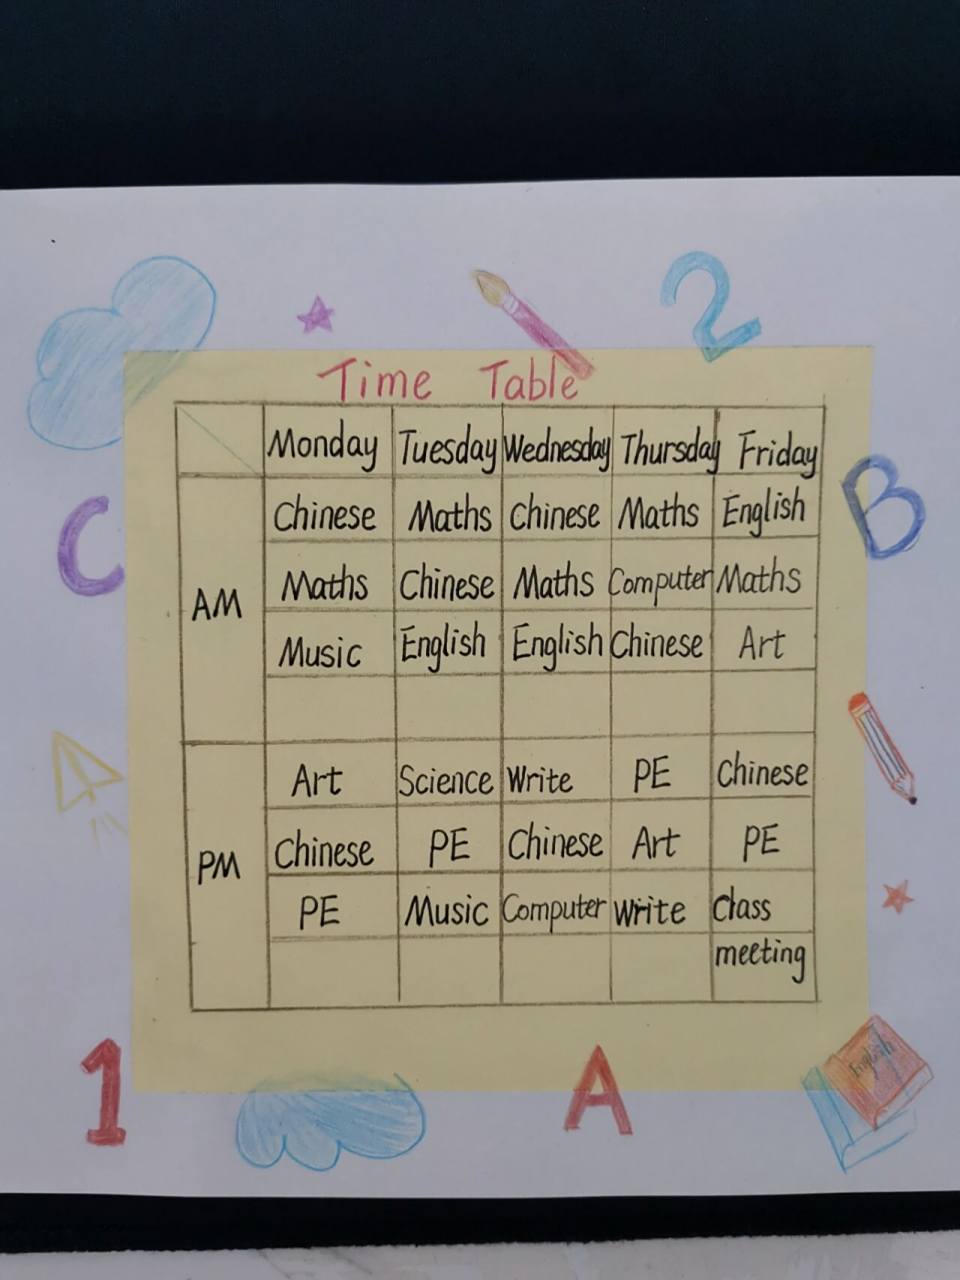 2
Time Table
Monday Tuesday Wednesday Thursday Friday
B
C
Chinese Maths Chinese Maths English
AM
Maths Chinese Maths Computer Maths
Music English English Chinese Art
PM
Art Science Write PE Chinese
Chinese PE Chinese Art PE
PE Music Computer Write Class
meeting
1
A
English